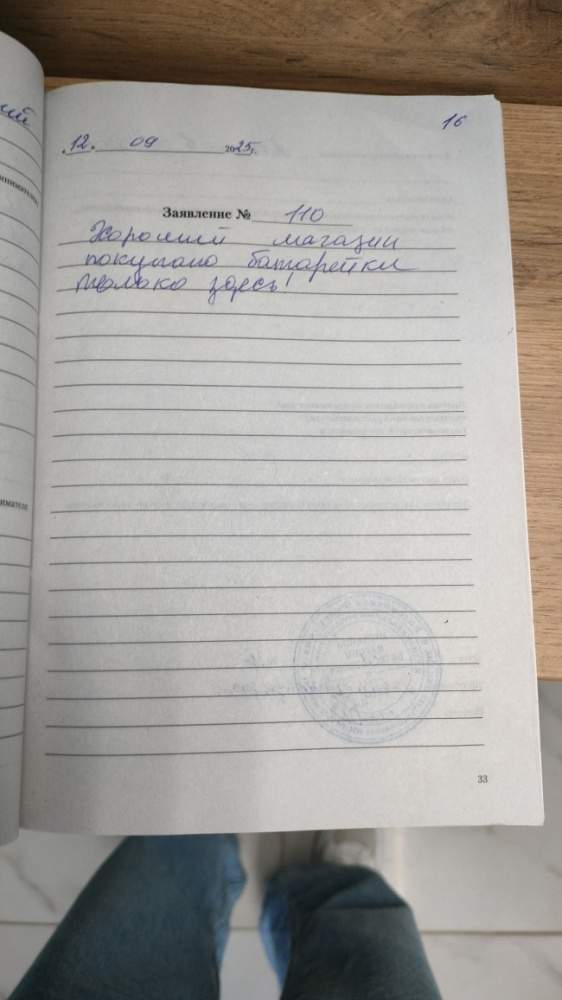 16
12. 09 2025г.
Заявление № 110
Хороший магазин
покупаю батарейки
только здесь!
33